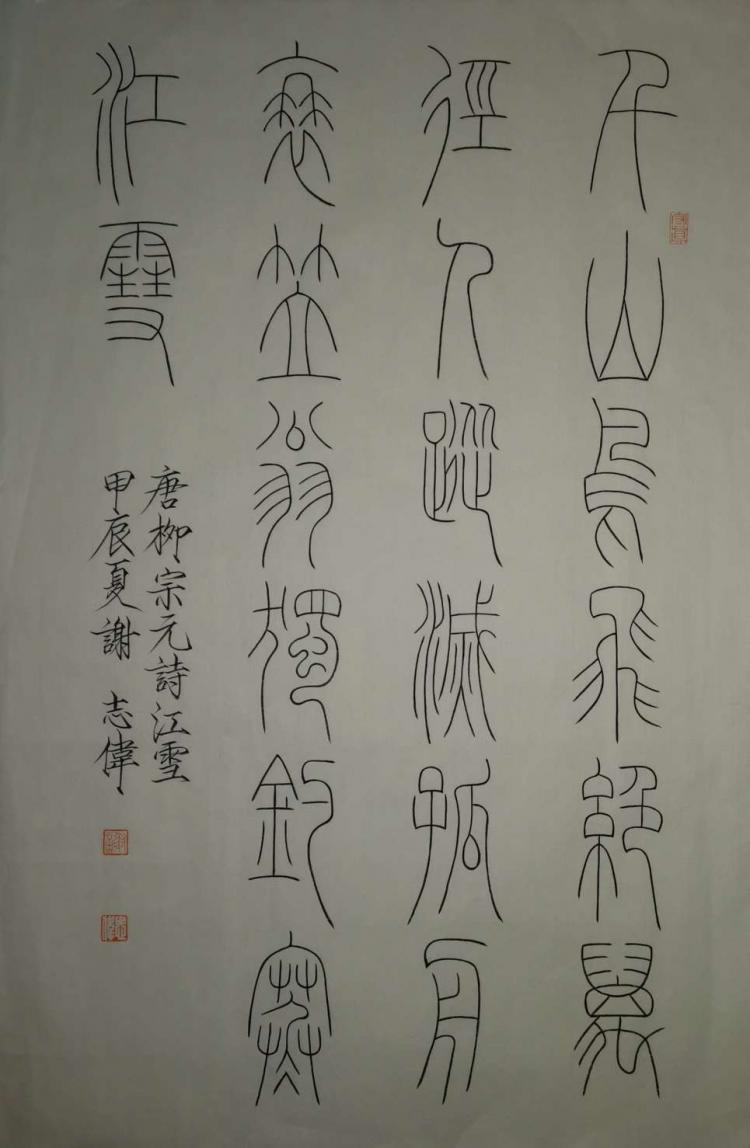 千山鳥飛絕萬
徑人蹤滅孤舟
蓑笠翁獨釣寒
江雪
唐柳宗元詩江雪
甲辰夏謝志偉